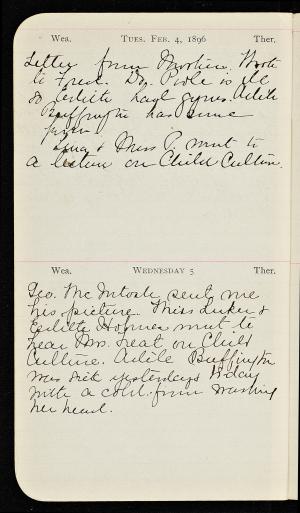 Wea. TUES. FEB. 4, 1896 Ther.
Letter from Martin. Wrote
to Fred. Dr. Poole is ill
so Estilete hasn't gymn. Adile
Buffington has some
fever.
Lena & Miss P. went to
a lecture on Child Culture.
Wea. WEDNESDAY 5 Ther.
Geo. McIntosh sent me
his picture. Miss Luker &
Hofman went to
hear Mrs. Treat on Child
Culture. Adile Buffington
was sick yesterday & today
with a cold from washing
her head.